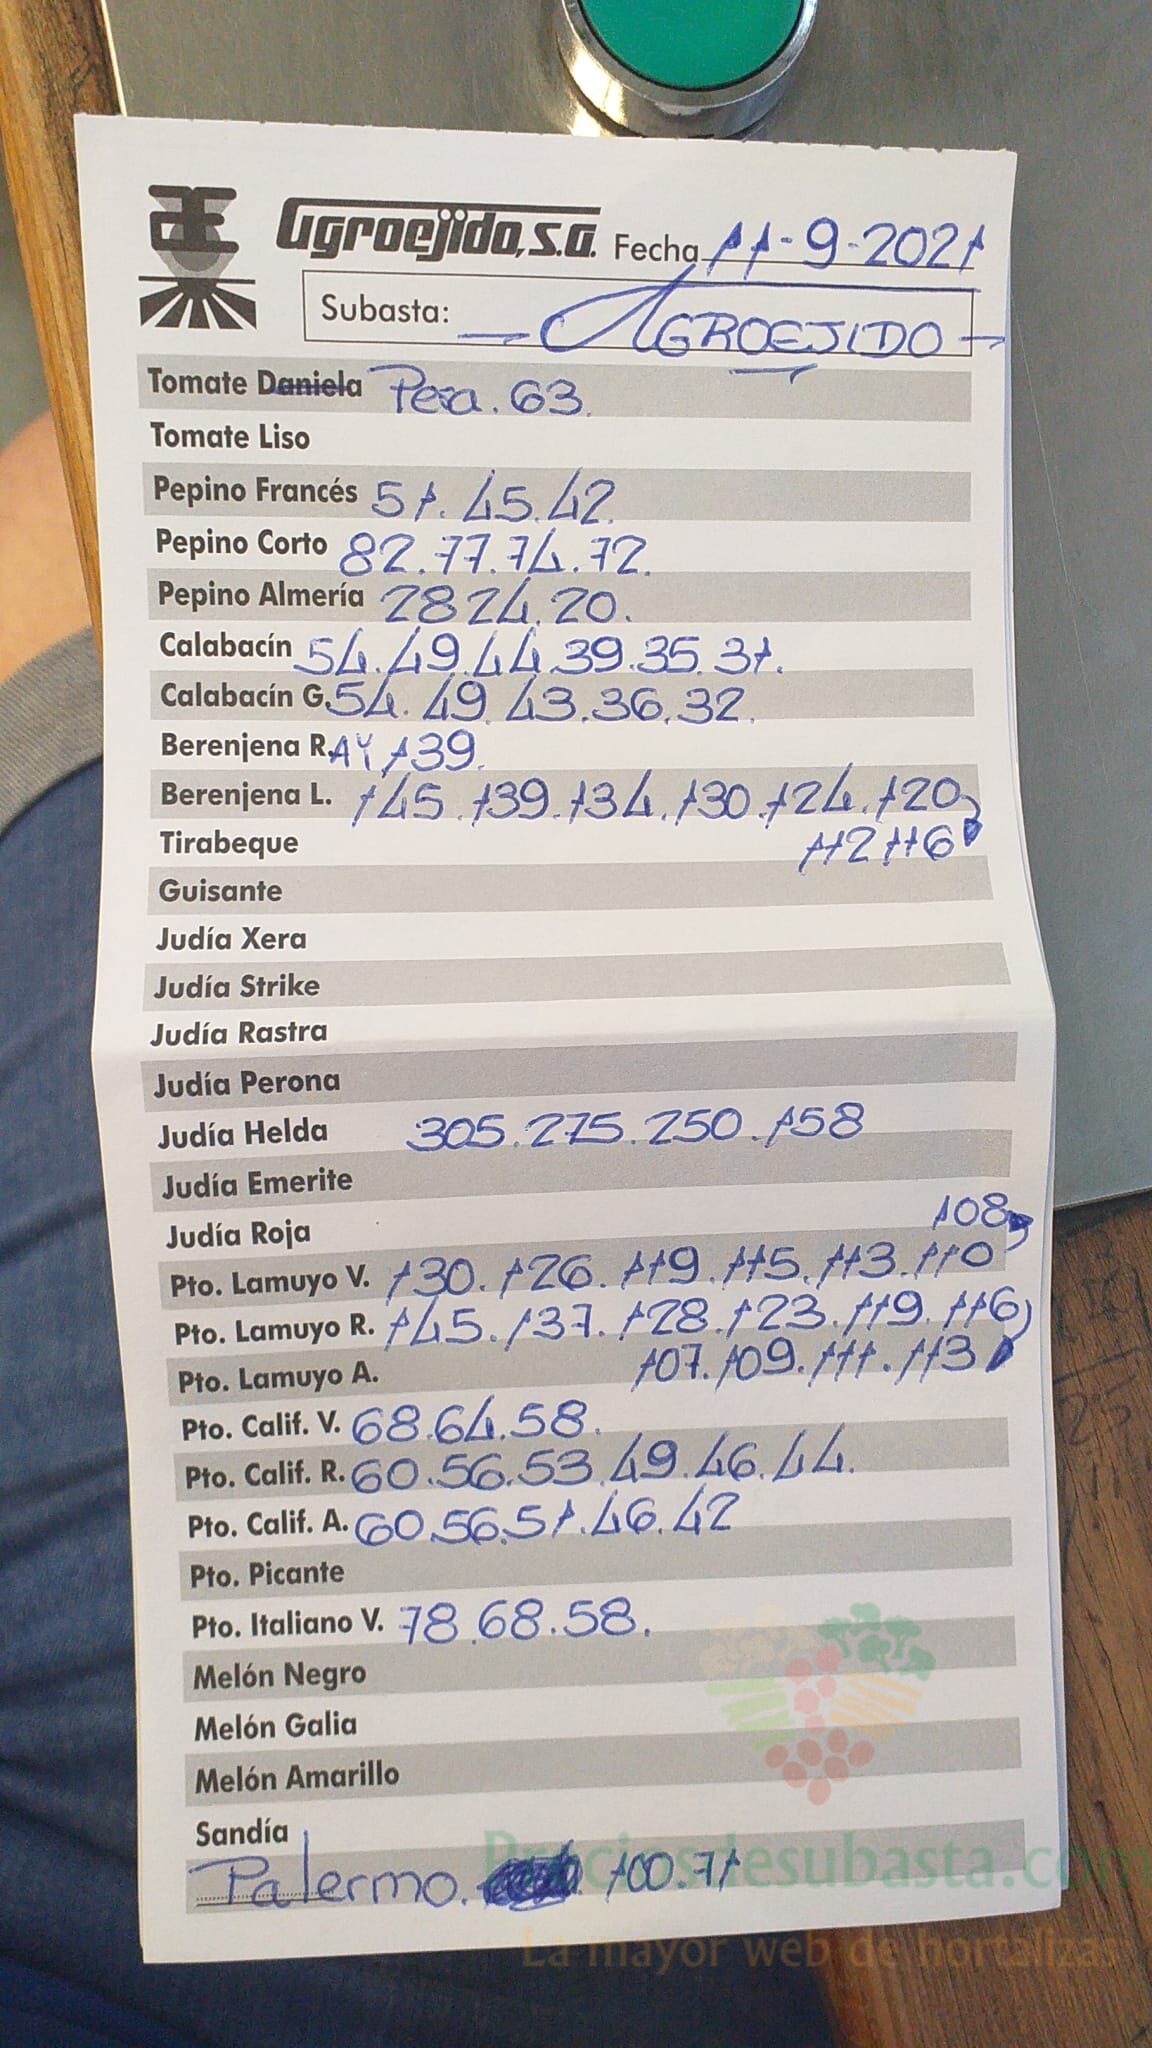 Agroejido, S.A. Fecha 11-9-2021
Subasta: AGROEJIDO
Tomate Daniela Pera. 63.
Tomate Liso
Pepino Francés 51. 45. 42.
Pepino Corto 82. 77. 74. 72.
Pepino Almería 28 24. 20.
Calabacín 54. 49. 44. 39. 35. 31.
Calabacín G. 54. 49. 43. 36. 32.
Berenjena R. AY 139.
Berenjena L. 145. 139. 134. 130. 124. 120
Tirabeque 112 116
Guisante
Judía Xera
Judía Strike
Judía Rastra
Judía Perona
Judía Helda 305. 275. 250. 158
Judía Emerite
Judía Roja 108
Pto. Lamuyo V. 130. 126. 119. 115. 113. 110
Pto. Lamuyo R. 145. 137. 128. 123. 119. 116
Pto. Lamuyo A. 107. 109. 111. 113
Pto. Calif. V. 68. 64. 58.
Pto. Calif. R. 60. 56. 53. 49. 46. 44.
Pto. Calif. A. 60. 56. 51. 46. 42
Pto. Picante
Pto. Italiano V. 78. 68. 58.
Melón Negro
Melón Galia
Melón Amarillo
Sandía
Palermo. 100. 71
Preciosdesubasta.com
La mayor web de hortalizas